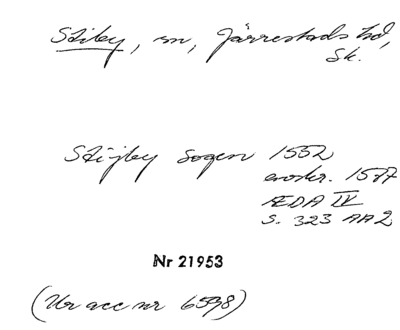 Stiby, sn, Järrestads hd,
Sk.
Stijby Sogen 1552
avskr. 1577
ÆDA IV
S. 323 AA2
Nr 21953
(Ur acc nr 6598)